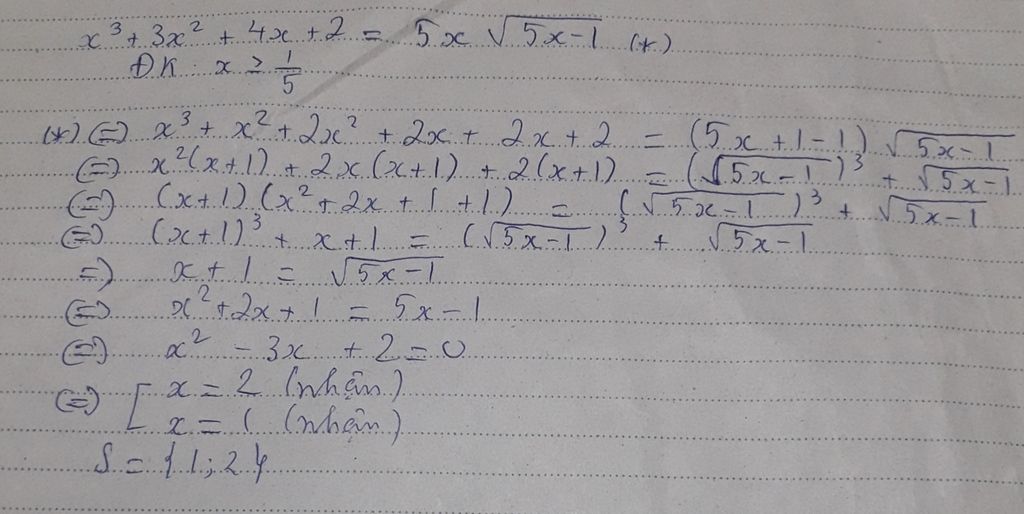 x³ + 3x² + 4x + 2 = 5x √(5x-1) (*)
ĐK x ≥ 1/5
(*) (=) x³ + x² + 2x² + 2x + 2x + 2 = (5x + 1 - 1) √(5x-1)
(=) x²(x+1) + 2x(x+1) + 2(x+1) = (√(5x-1))³ + √(5x-1)
(=) (x+1)(x² + 2x + 1 + 1) = (√(5x-1))³ + √(5x-1)
(=) (x+1)³ + x+1 = (√(5x-1))³ + √(5x-1)
=) x + 1 = √(5x-1)
(=) x² + 2x + 1 = 5x - 1
(=) x² - 3x + 2 = 0
(=) [ x = 2 (nhận)
x = 1 (nhận)
S = {1; 2}